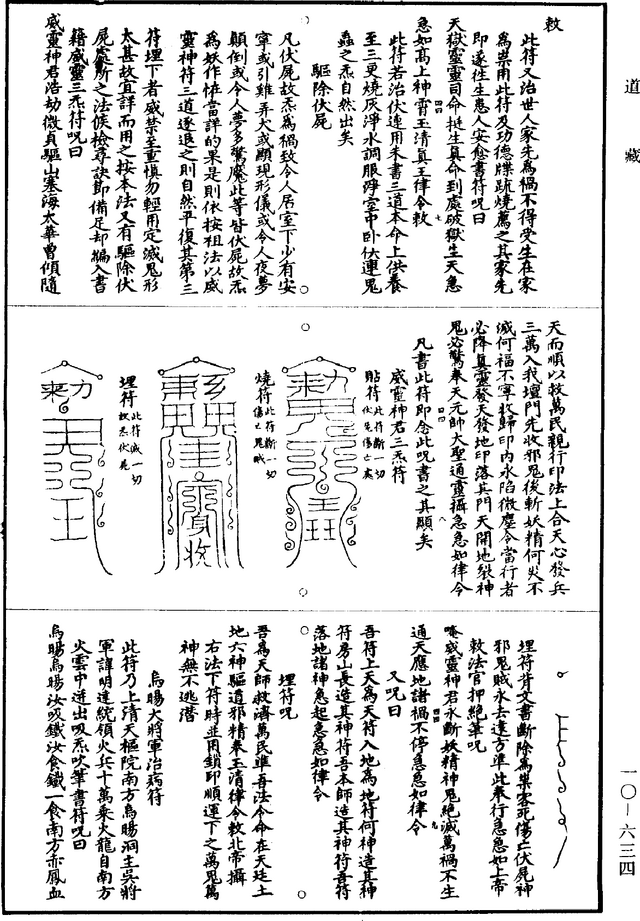 道藏
敕
此符又治世人家先為禍不得受生在家
為祟用此符及功德牒䟽燒薦之其家先
即遂徃生患人安愈書符呪曰
天獄靈靈司命挺生真命到處破獄生天急
急如高上神霄玉清真王律令敕
此符若治伏連用朱書三道本命上供養
至三更燒灰淨水調服淨室中卧伏連鬼
蟲之炁自然出矣
驅除伏屍
凡伏屍故炁為禍致令人居室下少有安
寧或引雞弄犬或顯現形儀或令人夜夢
顛倒或令人夢多驚魘此等皆伏屍故炁
為妖作恠當詳的果是則依按祖法以威
靈神符三道逐退之則自然平復其第三
符埋下者威禁至重慎勿輕用定滅鬼形
太甚故宜詳而用之按本法又有驅除伏
屍所之法俟檢尋訣即備足却編入書
籍威靈三炁符呪曰
威靈神君浩劫微真驅山塞海太華曾傾隨
天而順以救萬民親行印法上合天心發兵
三萬入我壇門先收邪鬼後斬妖精何災不
滅何福不寧敕歸印內永陷微塵令當行者
必降真靈發天發地印落其門天開地裂神
鬼必驚奉天元帥大聖通靈攝急急如律令
凡書此符即念此呪書之其顯矣
威靈神君三炁符
貼符此符斷一切伏屍傷亡處
燒符此符斷一切傷亡鬼賊
埋符此符滅一切故炁伏屍
埋符背文書斷除為祟客死傷亡伏屍神
邪鬼賊永去遠方準此奉行急急如上帝
敕法官押絕筆呪
唵威靈神君永斷妖精神鬼絕滅萬禍不生
通天應地諸禍不停急急如律令
又呪曰
吾符上天為天符入地為地符何神造其神
符房山長造其神符吾本師造其神符吾符
落地諸神急起急急如律令
埋符呪
吾為天師救濟萬民準吾法令命在天廷土
地六神驅道邪精奉玉清律令敕北帝攝
右法下符時並用鎖印順運下之萬鬼萬
神無不逃潛
烏暘大將軍治病符
此符乃上清天樞院南方烏暘洞主吳將
軍諱明達統領火兵十萬乘火龍自南方
火雲中迸出吸炁吹筆書符呪曰
烏暘烏暘汝吸鐵汝食鐵一食南方赤鳳血
一〇—六三四